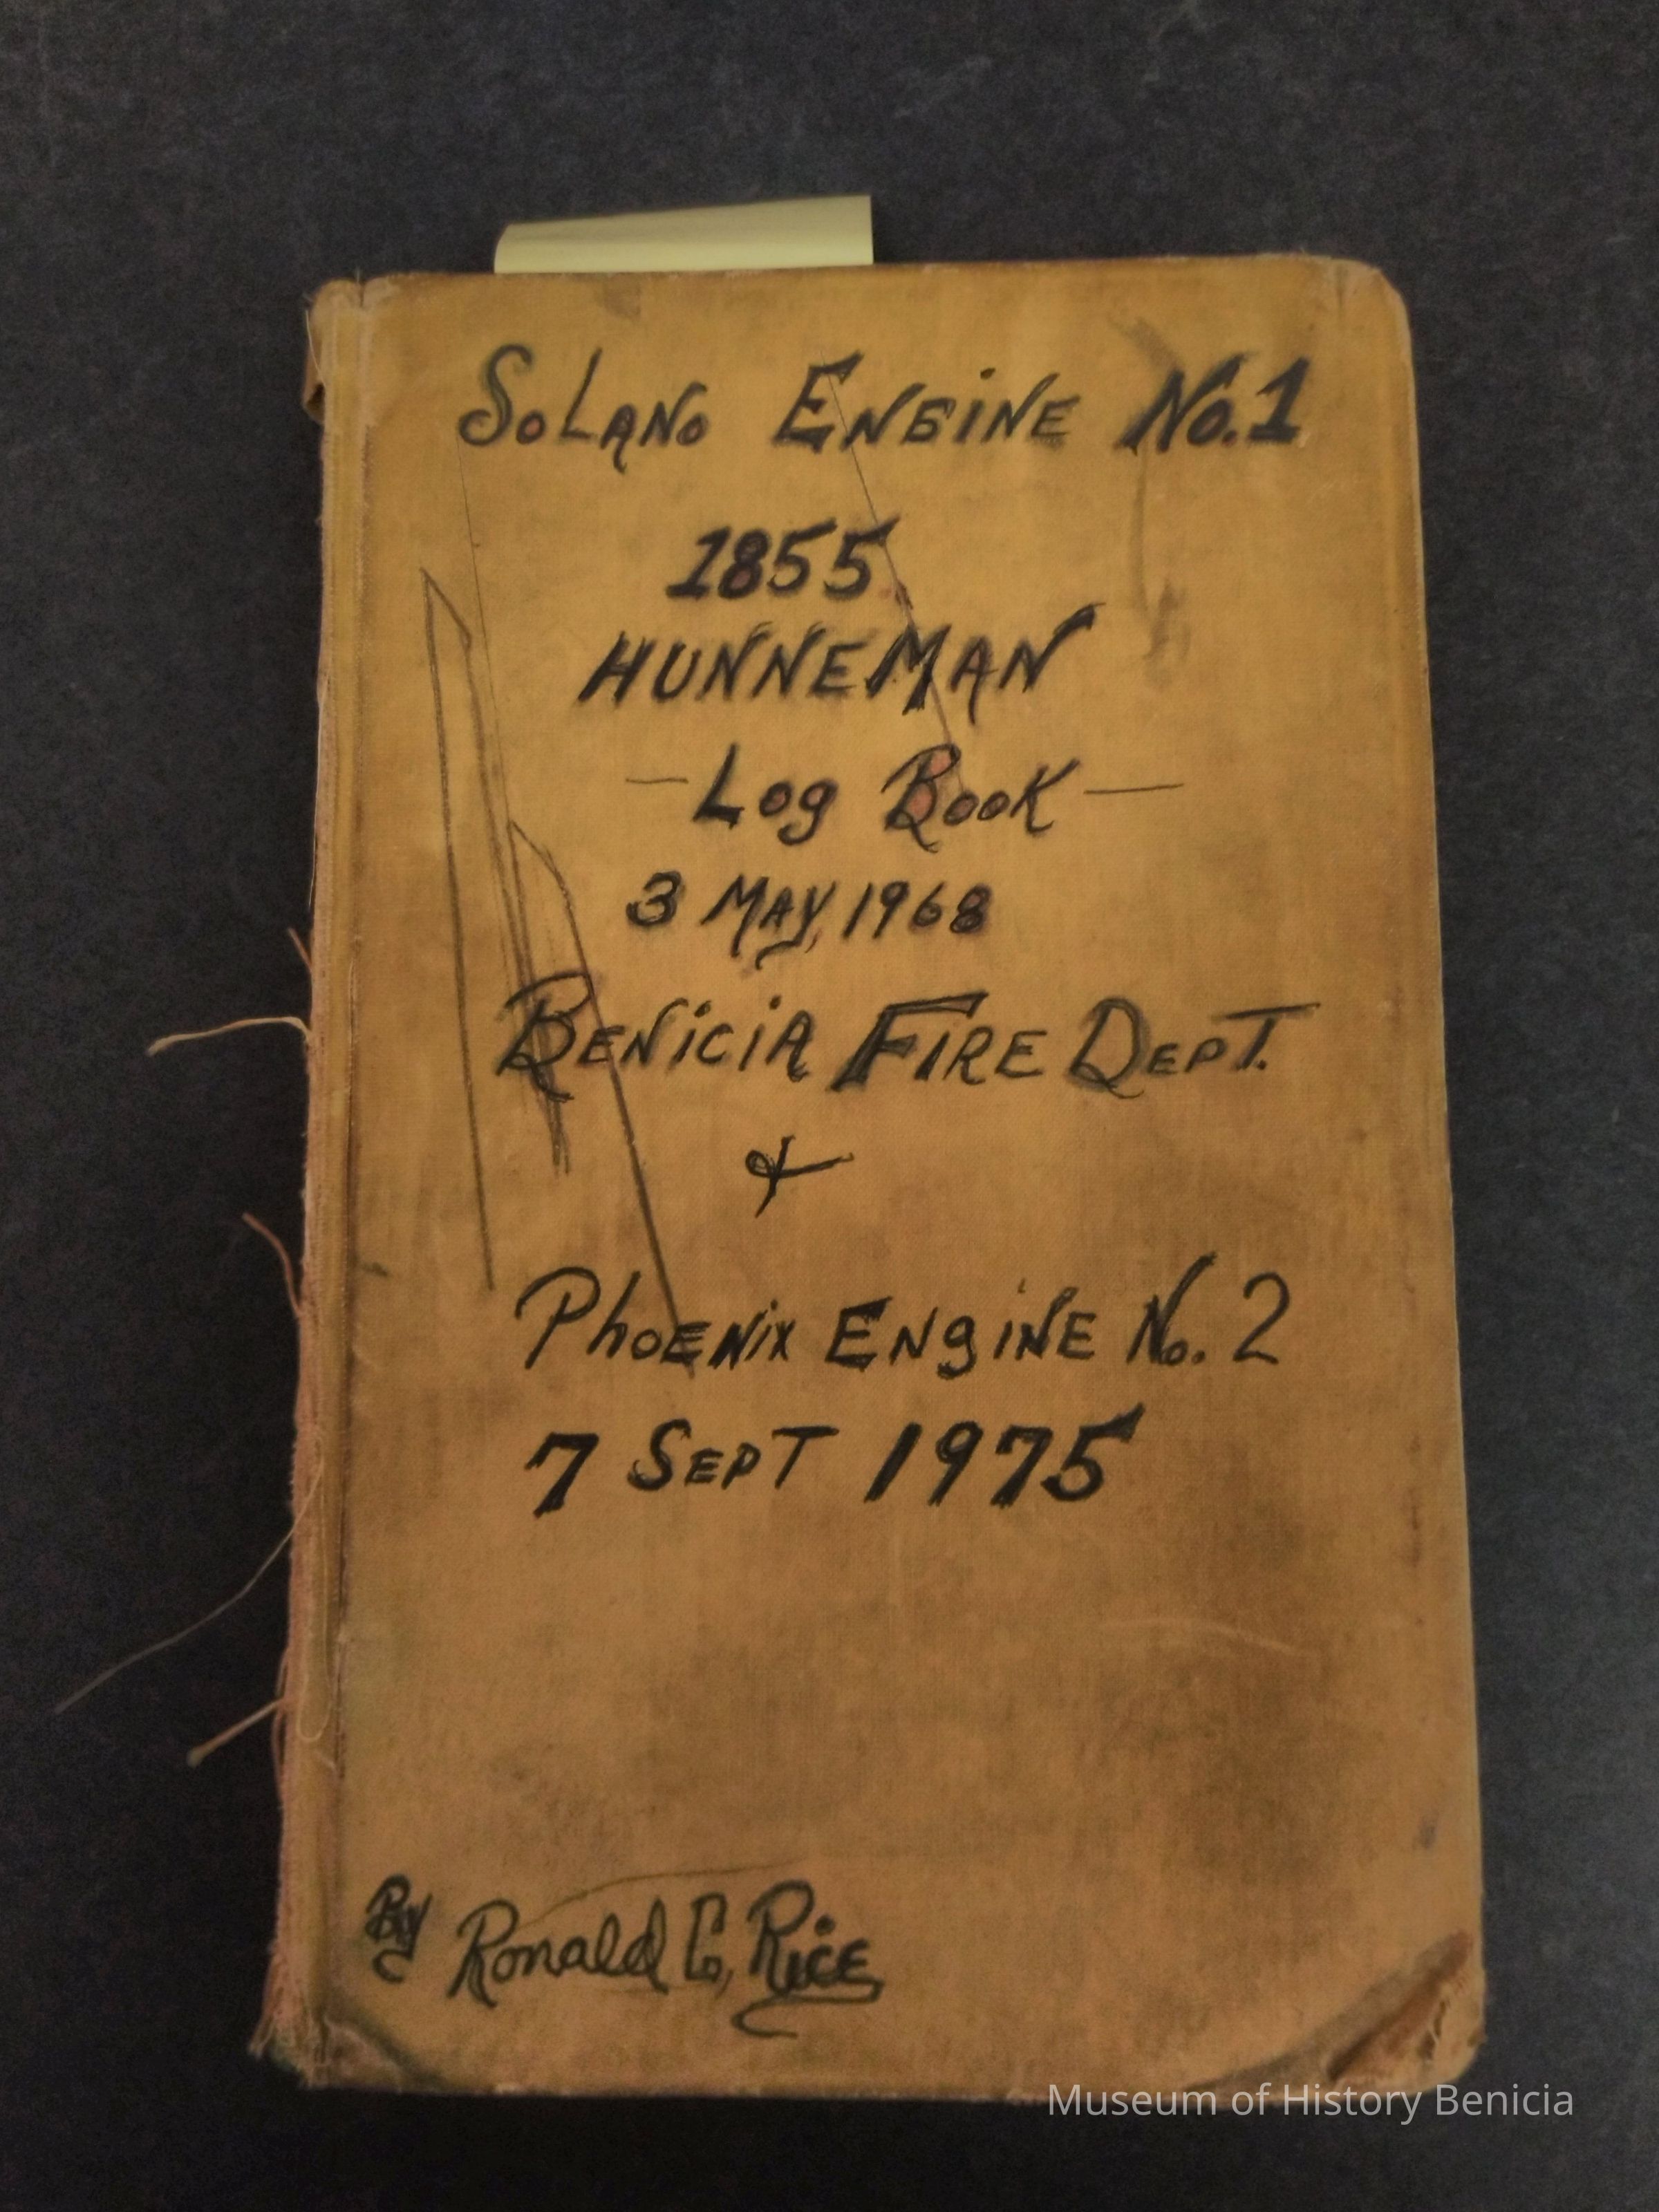 Solano Engine No. 1
1855
HUNNEMAN
- Log Book -
3 May, 1968
Benicia Fire Dept.
&
Phoenix Engine No. 2
7 Sept 1975
By Ronald C. Rice
Museum of History Benicia